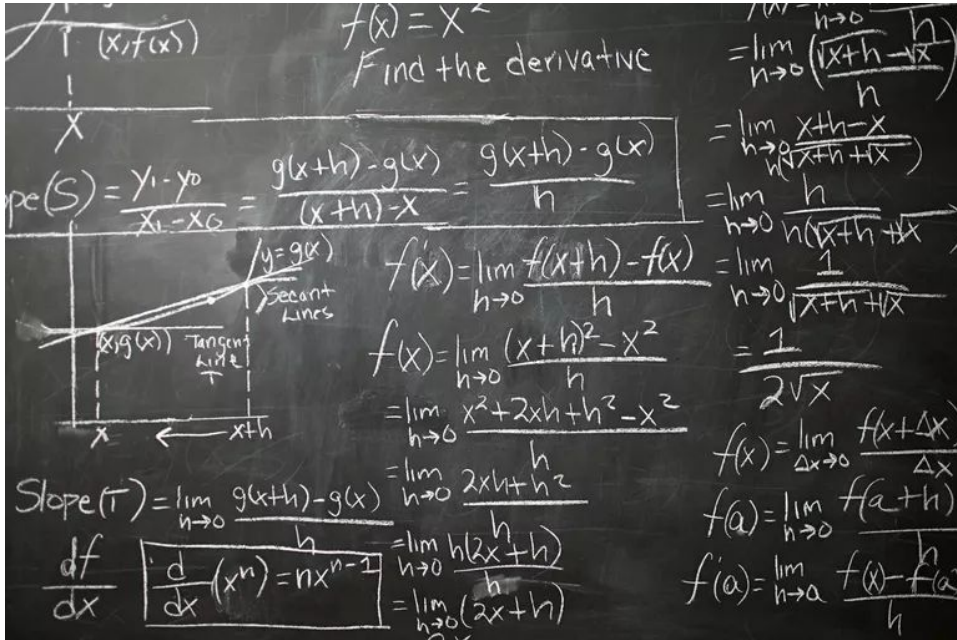 (x, f(x))
x
f(x) = x²
Find the derivative
ope(S) = y₁ - y₀ / x₁ - x₀ = g(x+h) - g(x) / (x+h) - x = g(x+h) - g(x) / h
y = g(x)
Secant
Lines
(x, g(x))
Tangen
Line
T
x ← x+h
Slope(T) = lim h→0 g(x+h) - g(x) / h
df / dx
d/dx (xⁿ) = nxⁿ⁻¹
f'(x) = lim h→0 f(x+h) - f(x) / h
f(x) = lim h→0 (x+h)² - x² / h
= lim h→0 x² + 2xh + h² - x² / h
= lim h→0 2xh + h² / h
= lim h→0 h(2x+h) / h
= lim h→0 (2x+h)
h→0 h
= lim h→0 (√x+h - √x) / h
= lim h→0 x+h-x / h(√x+h + √x)
= lim h→0 h / h(√x+h + √x
= lim h→0 1 / √x+h + √x
= 1 / 2√x
f(x) = lim Δx→0 f(x+Δx / Δx
f(a) = lim h→0 f(a+h) / h
f'(a) = lim h→a f(x) - f(a / h